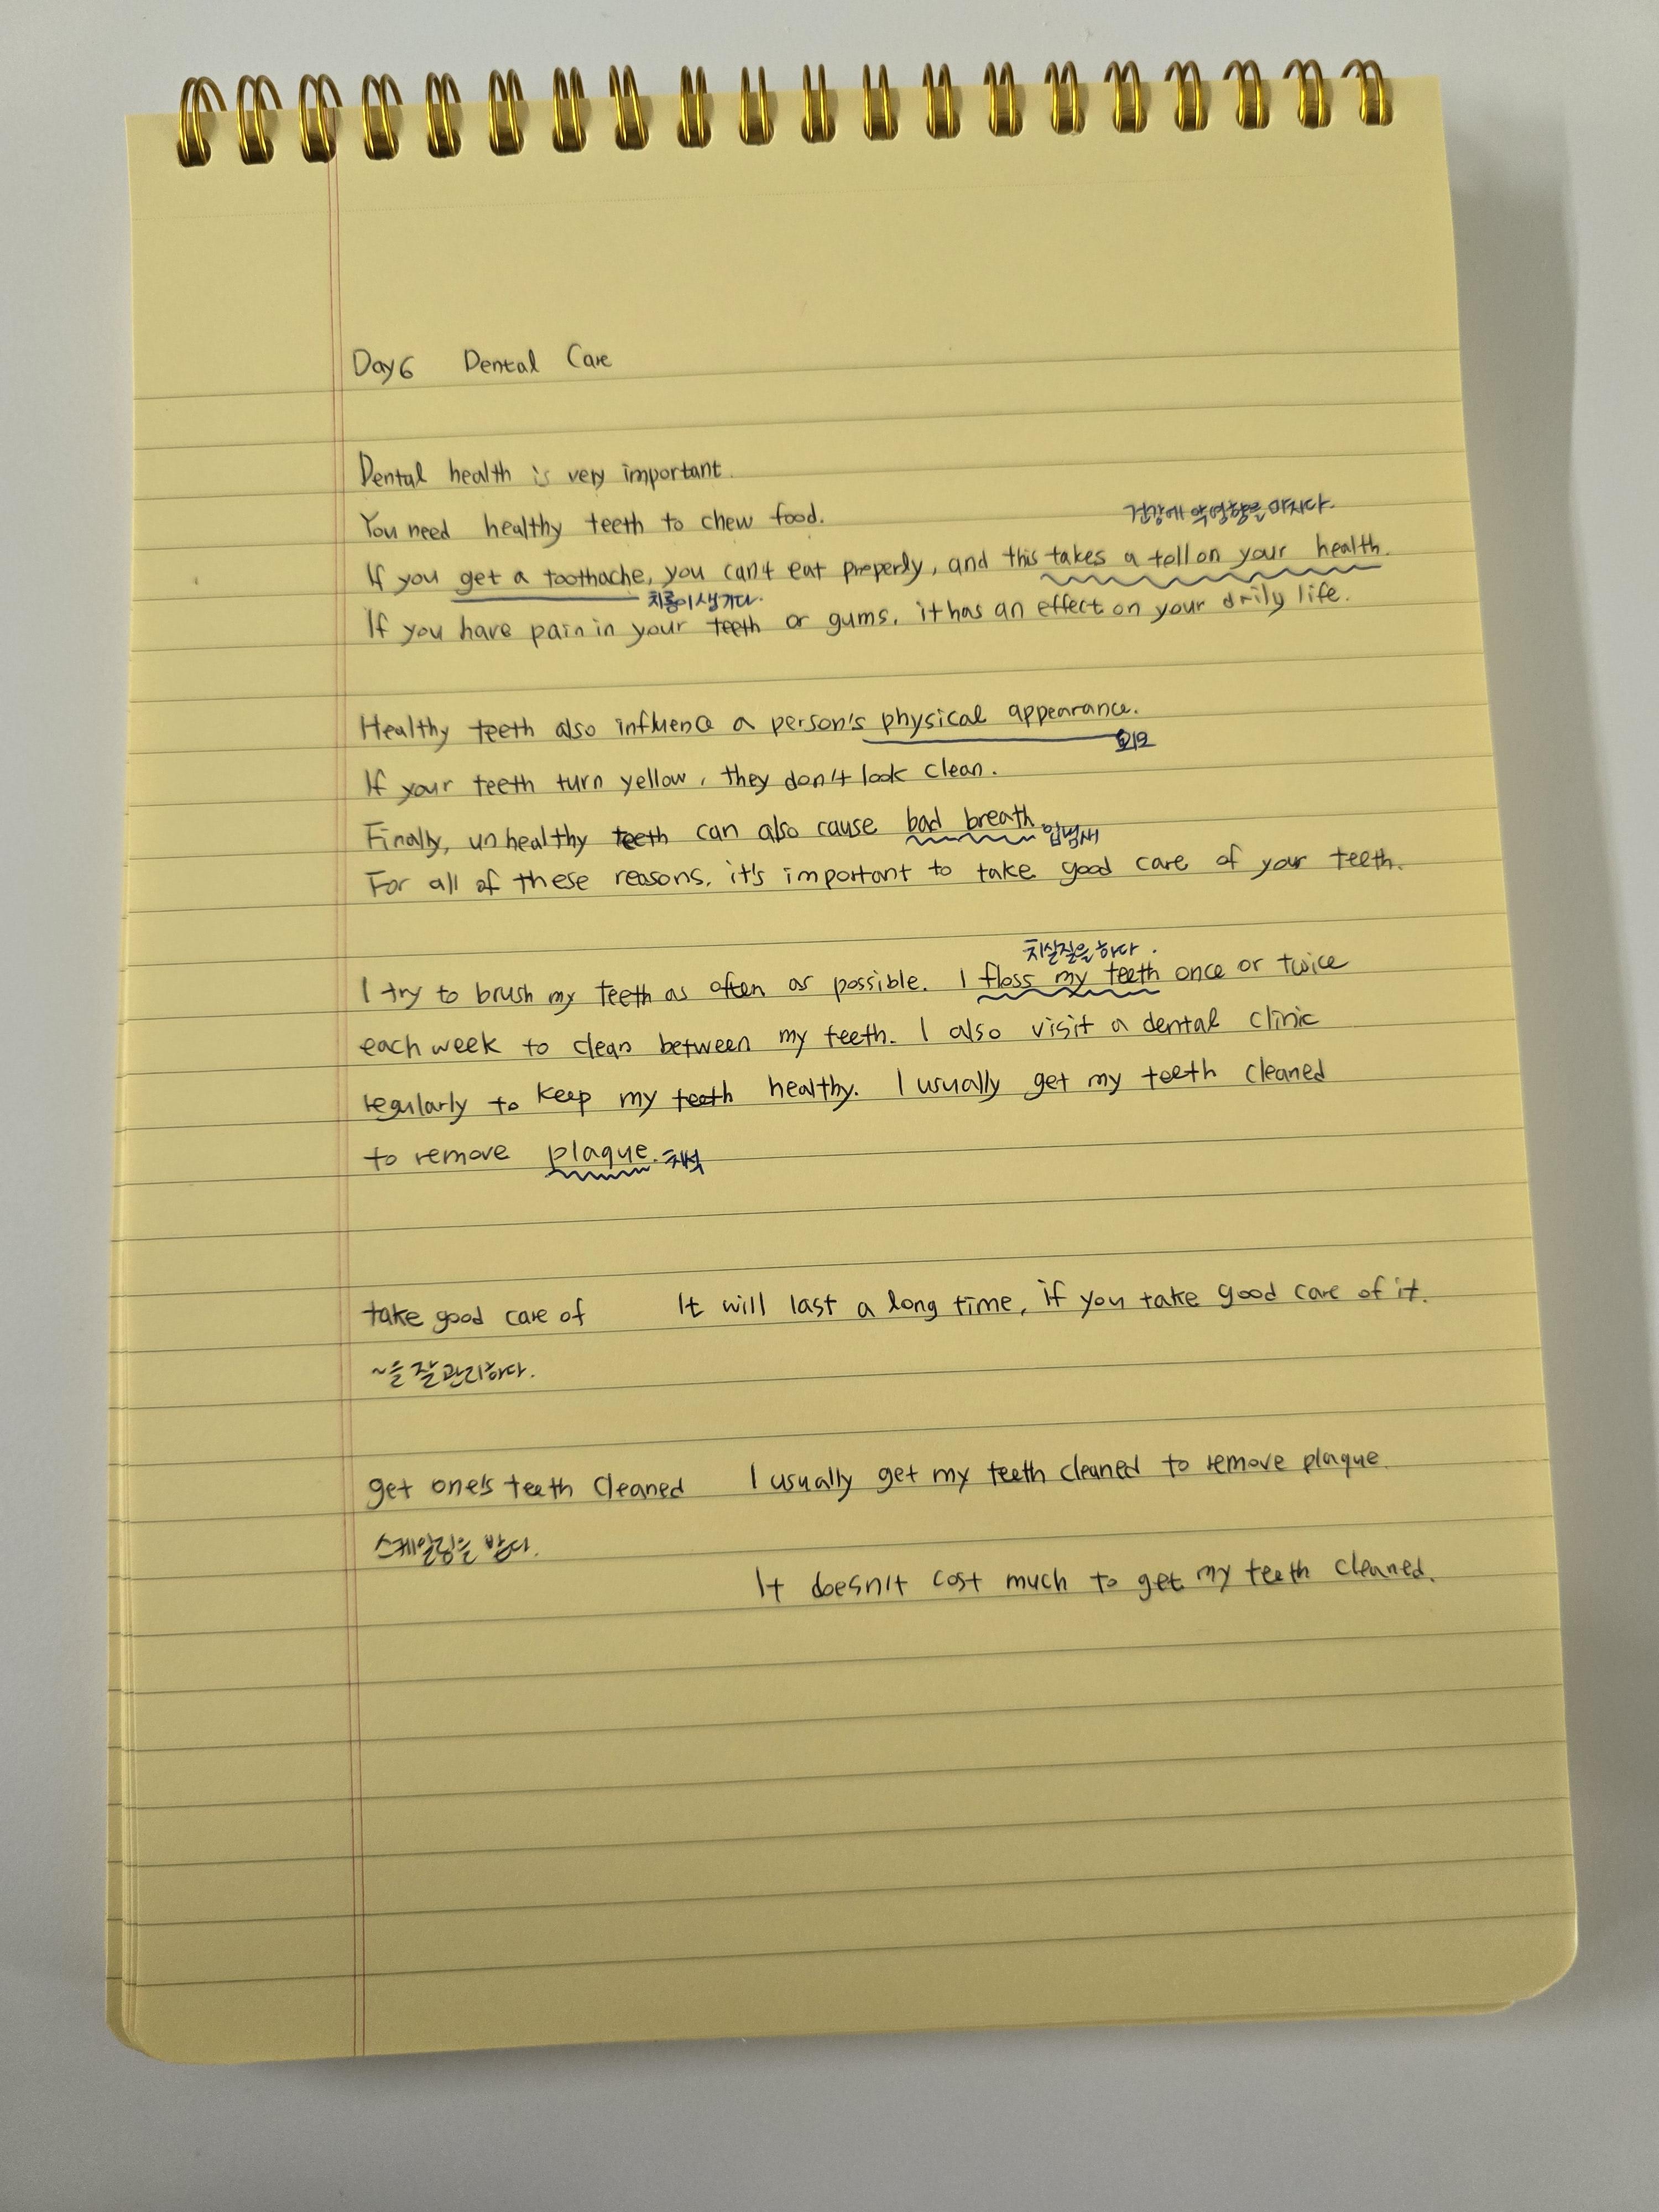 Day 6 Dental Care
Dental health is very important.
You need healthy teeth to chew food.
건강에 악영향을 마치다.
If you get a toothache, you can't eat properly, and this takes a toll on your health.
치통이 생기다.
If you have pain in your teeth or gums, it has an effect on your daily life.
Healthy teeth also influence a person's physical appearance.
외모
If your teeth turn yellow, they don't look clean.
Finally, unhealthy teeth can also cause bad breath. 입냄새
For all of these reasons, it's important to take good care of your teeth.
치실질을 하다.
I try to brush my teeth as often as possible. I floss my teeth once or twice
each week to clean between my teeth. I also visit a dental clinic
regularly to keep my teeth healthy. I usually get my teeth cleaned
to remove plaque. 치석
take good care of It will last a long time, if you take good care of it.
~을 잘 관리하다.
get one's teeth cleaned I usually get my teeth cleaned to remove plaque.
스케일링을 받다.
It doesn't cost much to get my teeth cleaned.